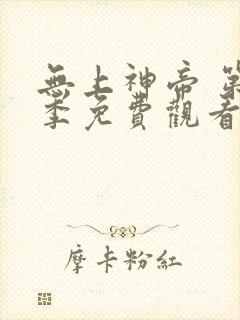 無上神帝 第
季免費觀看
摩卡粉紅